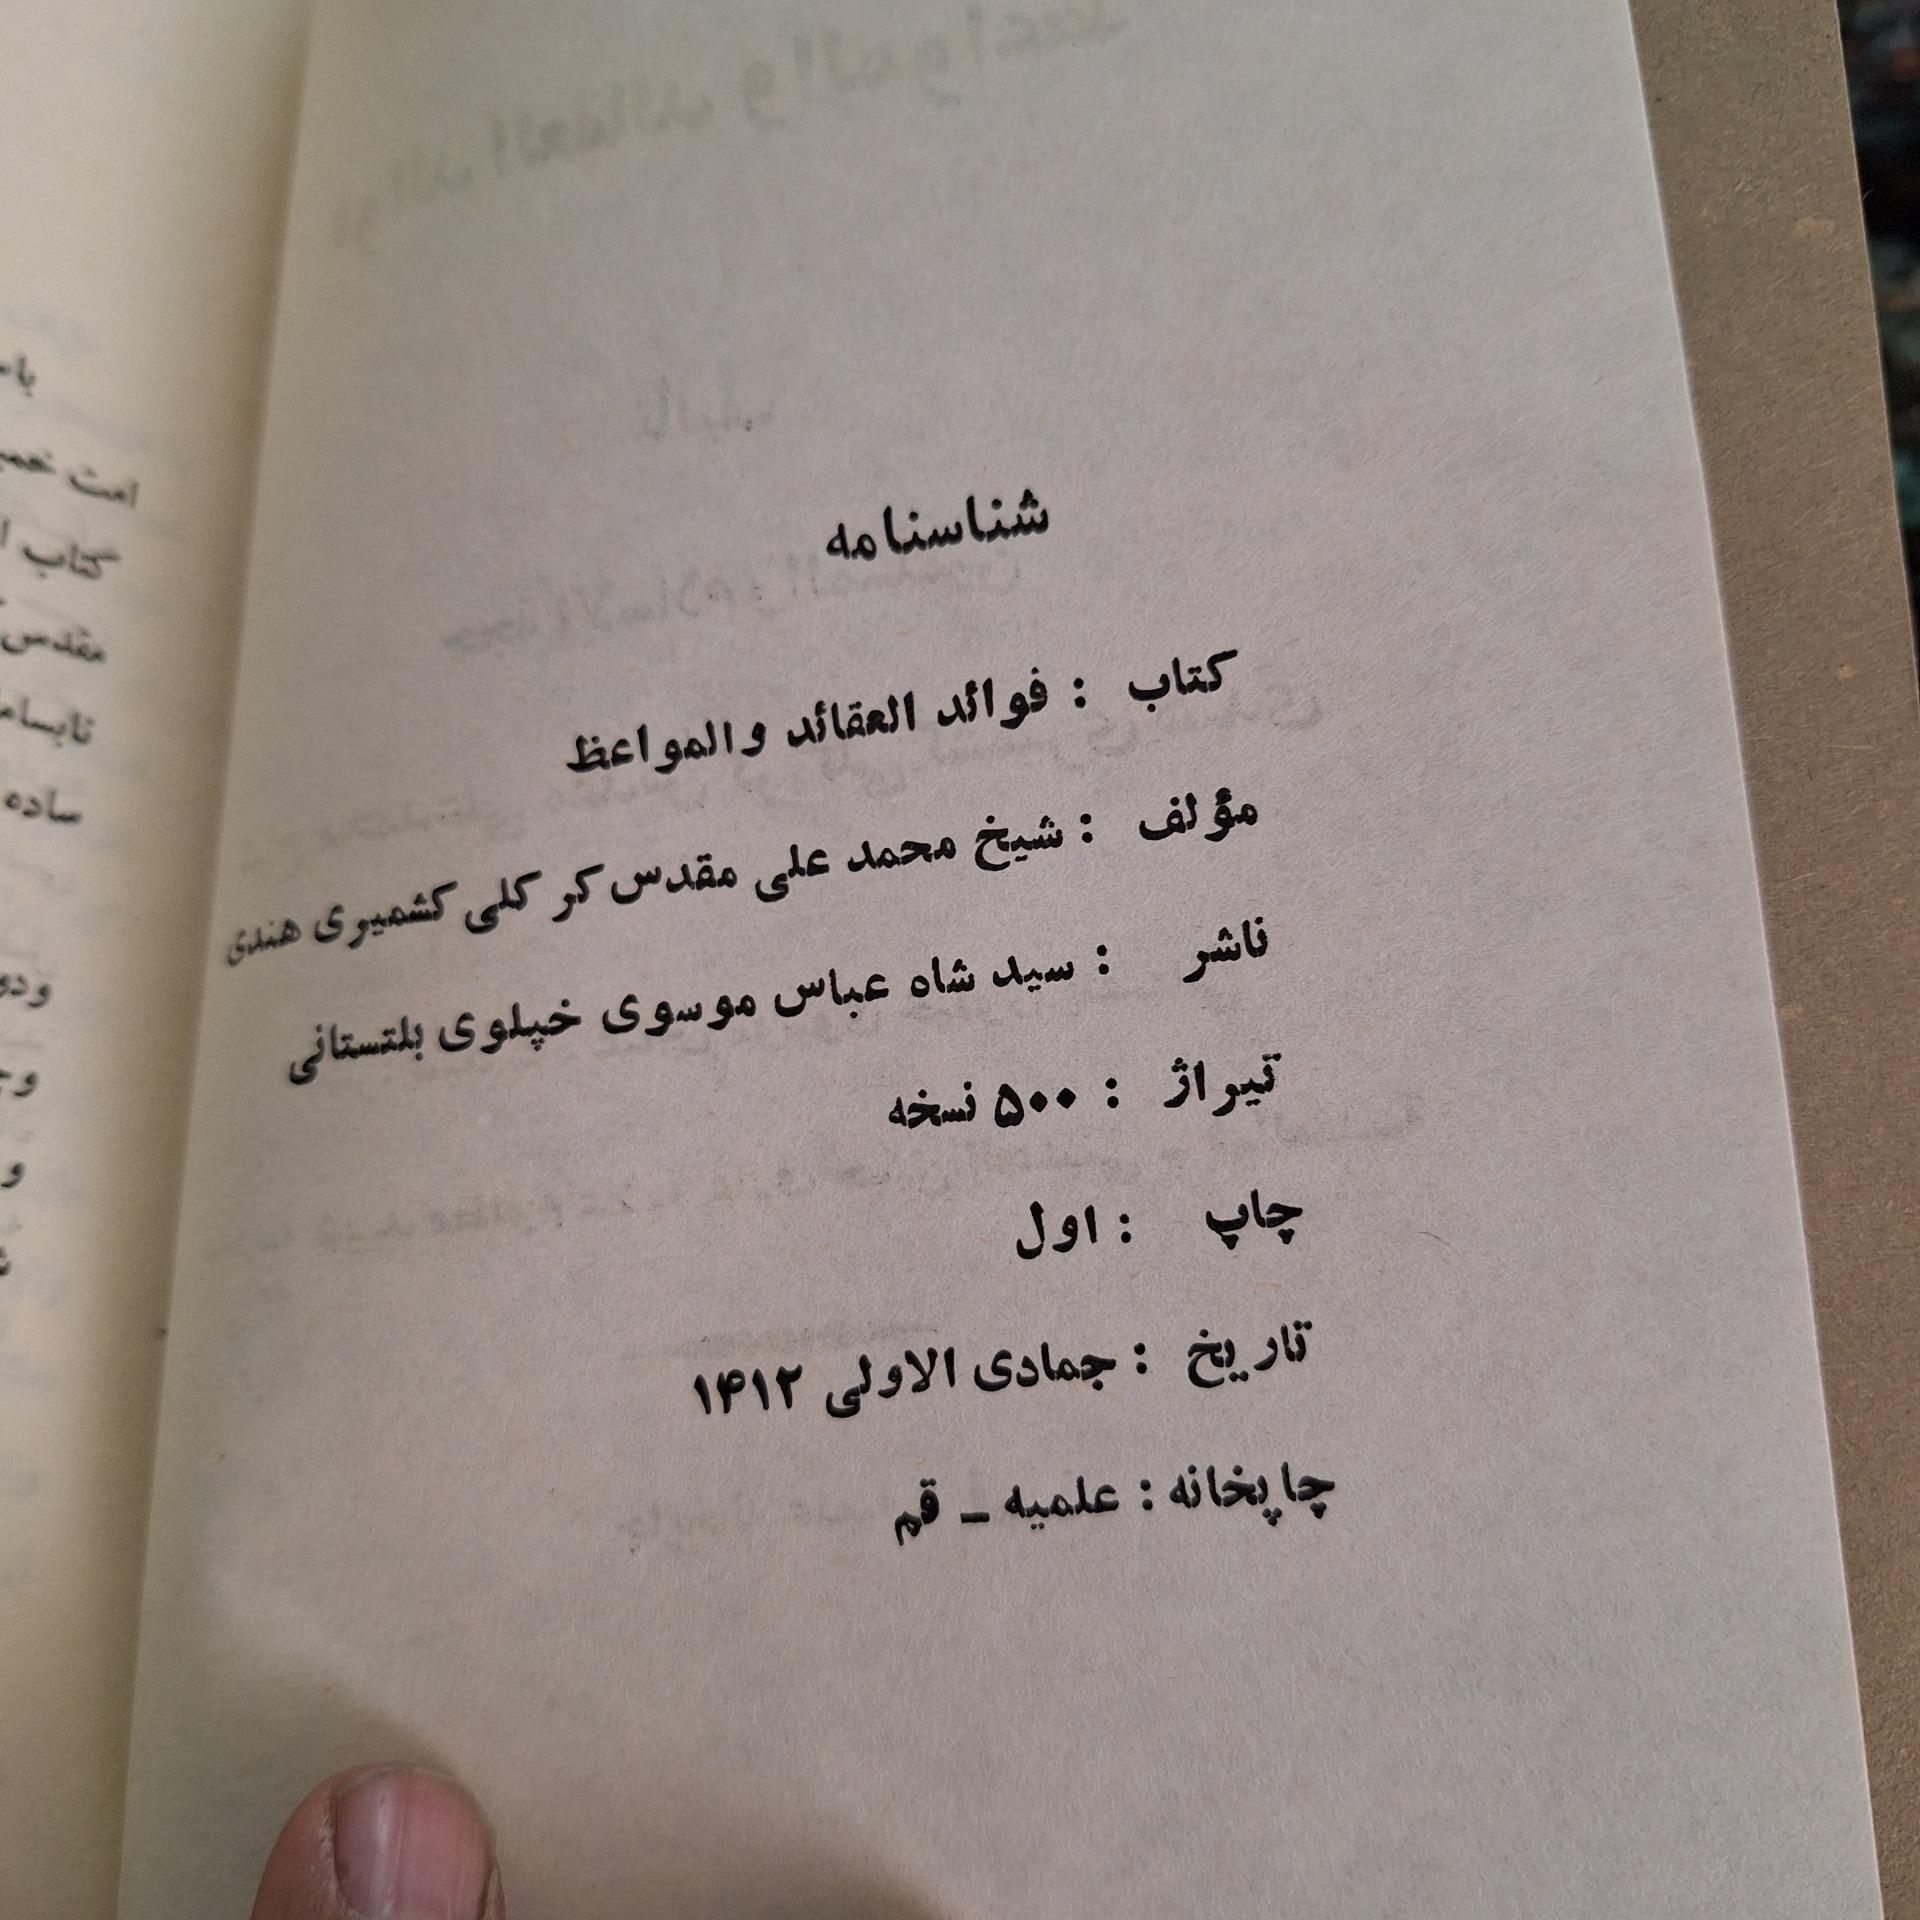 شناسنامه
کتاب : فوائد العقائد والمواعظ
مؤلف : شیخ محمد علی مقدس کر کلی کشمیری هندی
ناشر : سید شاه عباس موسوی خپلوی بلتستانی
تیراژ : ۵۰۰ نسخه
چاپ : اول
تاریخ : جمادی الاولی ۱۴۱۲
چاپخانه : علمیه ـ قم
امت
کتاب
مقدس
ساده